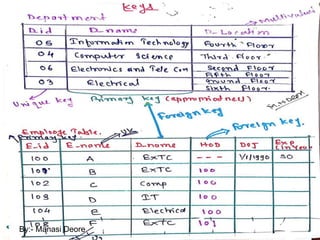 Keys
Department
multivalued
D-id D-name D-Location
05 Information Technology Fourth Floor
04 Computer Science Third Floor
06 Electronics and Tele Com Second Floor
Fifth Floor
03 Electrical Ground Floor
Sixth Floor
Unique key Primary key (appropriateness)
Foreign key
Foreign key.
Employee Table.
Primary key UK
E-id E-name D-name HOD DOJ Exp
100 A EXTC --- 1/1/1990 20
101 B EXTC 100
102 C Comp 100
103 D IT 100
104 E Electrical 100
105 F EXTC 101
By:- Manasi Deore